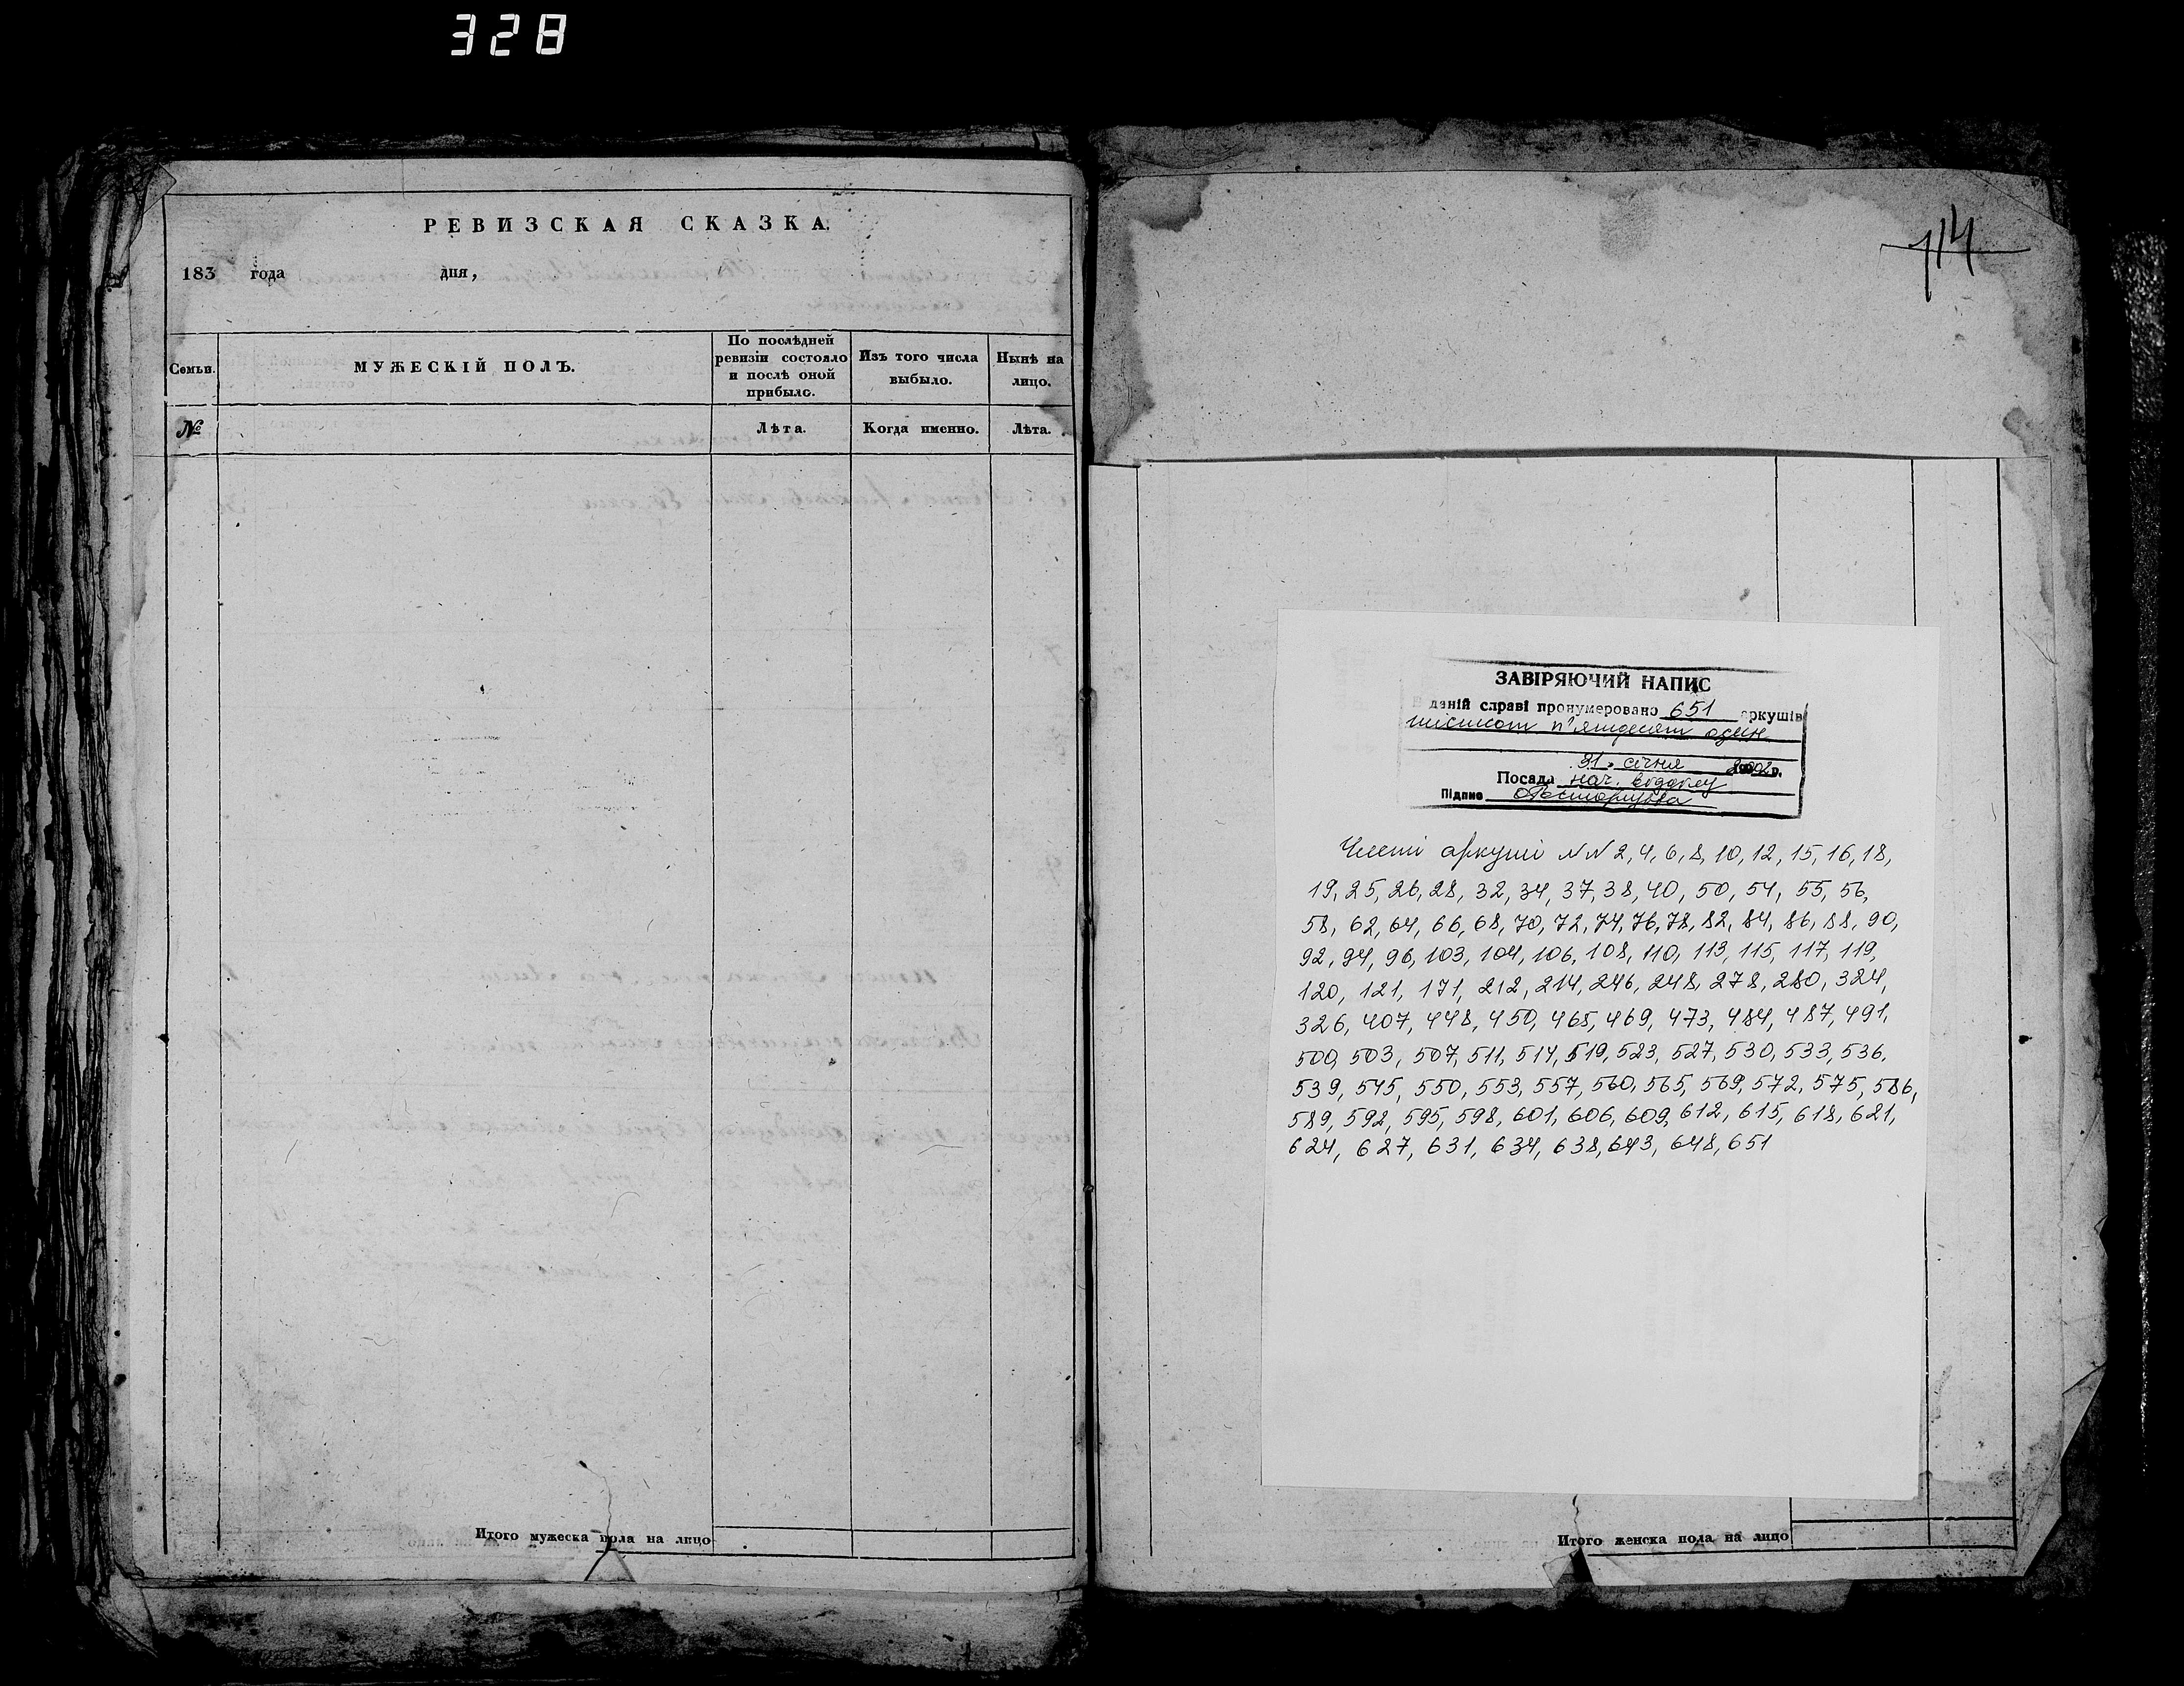 328
РЕВИЗСКАЯ СКАЗКА.
183 года дня,
Семьи.
МУЖЕСКІЙ ПОЛЪ.
По послѣдней ревизіи состояло и послѣ оной прибыло.
Изъ того числа выбыло.
Нынѣ на лицо.
№
Лѣта.
Когда именно.
Лѣта.
Итого мужеска пола на лицо
114
ЗАВІРЯЮЧИЙ НАПИС
даній справі пронумеровано 651 аркушів
шістсот п'ятдесят один
31. січня 2002р.
Посада нач. відділу
Підпис
Чисті аркуші NN 2, 4, 6, 8, 10, 12, 15, 16, 18,
19, 25, 26, 28, 32, 34, 37, 38, 40, 50, 54, 55, 56,
58, 62, 64, 66, 68, 70, 72, 74, 76, 78, 82, 84, 86, 88, 90,
92, 94, 96, 103, 104, 106, 108, 110, 113, 115, 117, 119,
120, 121, 171, 212, 214, 246, 248, 278, 280, 324,
326, 407, 448, 450, 465, 469, 473, 484, 487, 491,
500, 503, 507, 511, 514, 519, 523, 527, 530, 533, 536,
539, 545, 550, 553, 557, 560, 565, 569, 572, 575, 586,
589, 592, 595, 598, 601, 606, 609, 612, 615, 618, 621,
624, 627, 631, 634, 638, 643, 648, 651
Итого женска пола на лицо